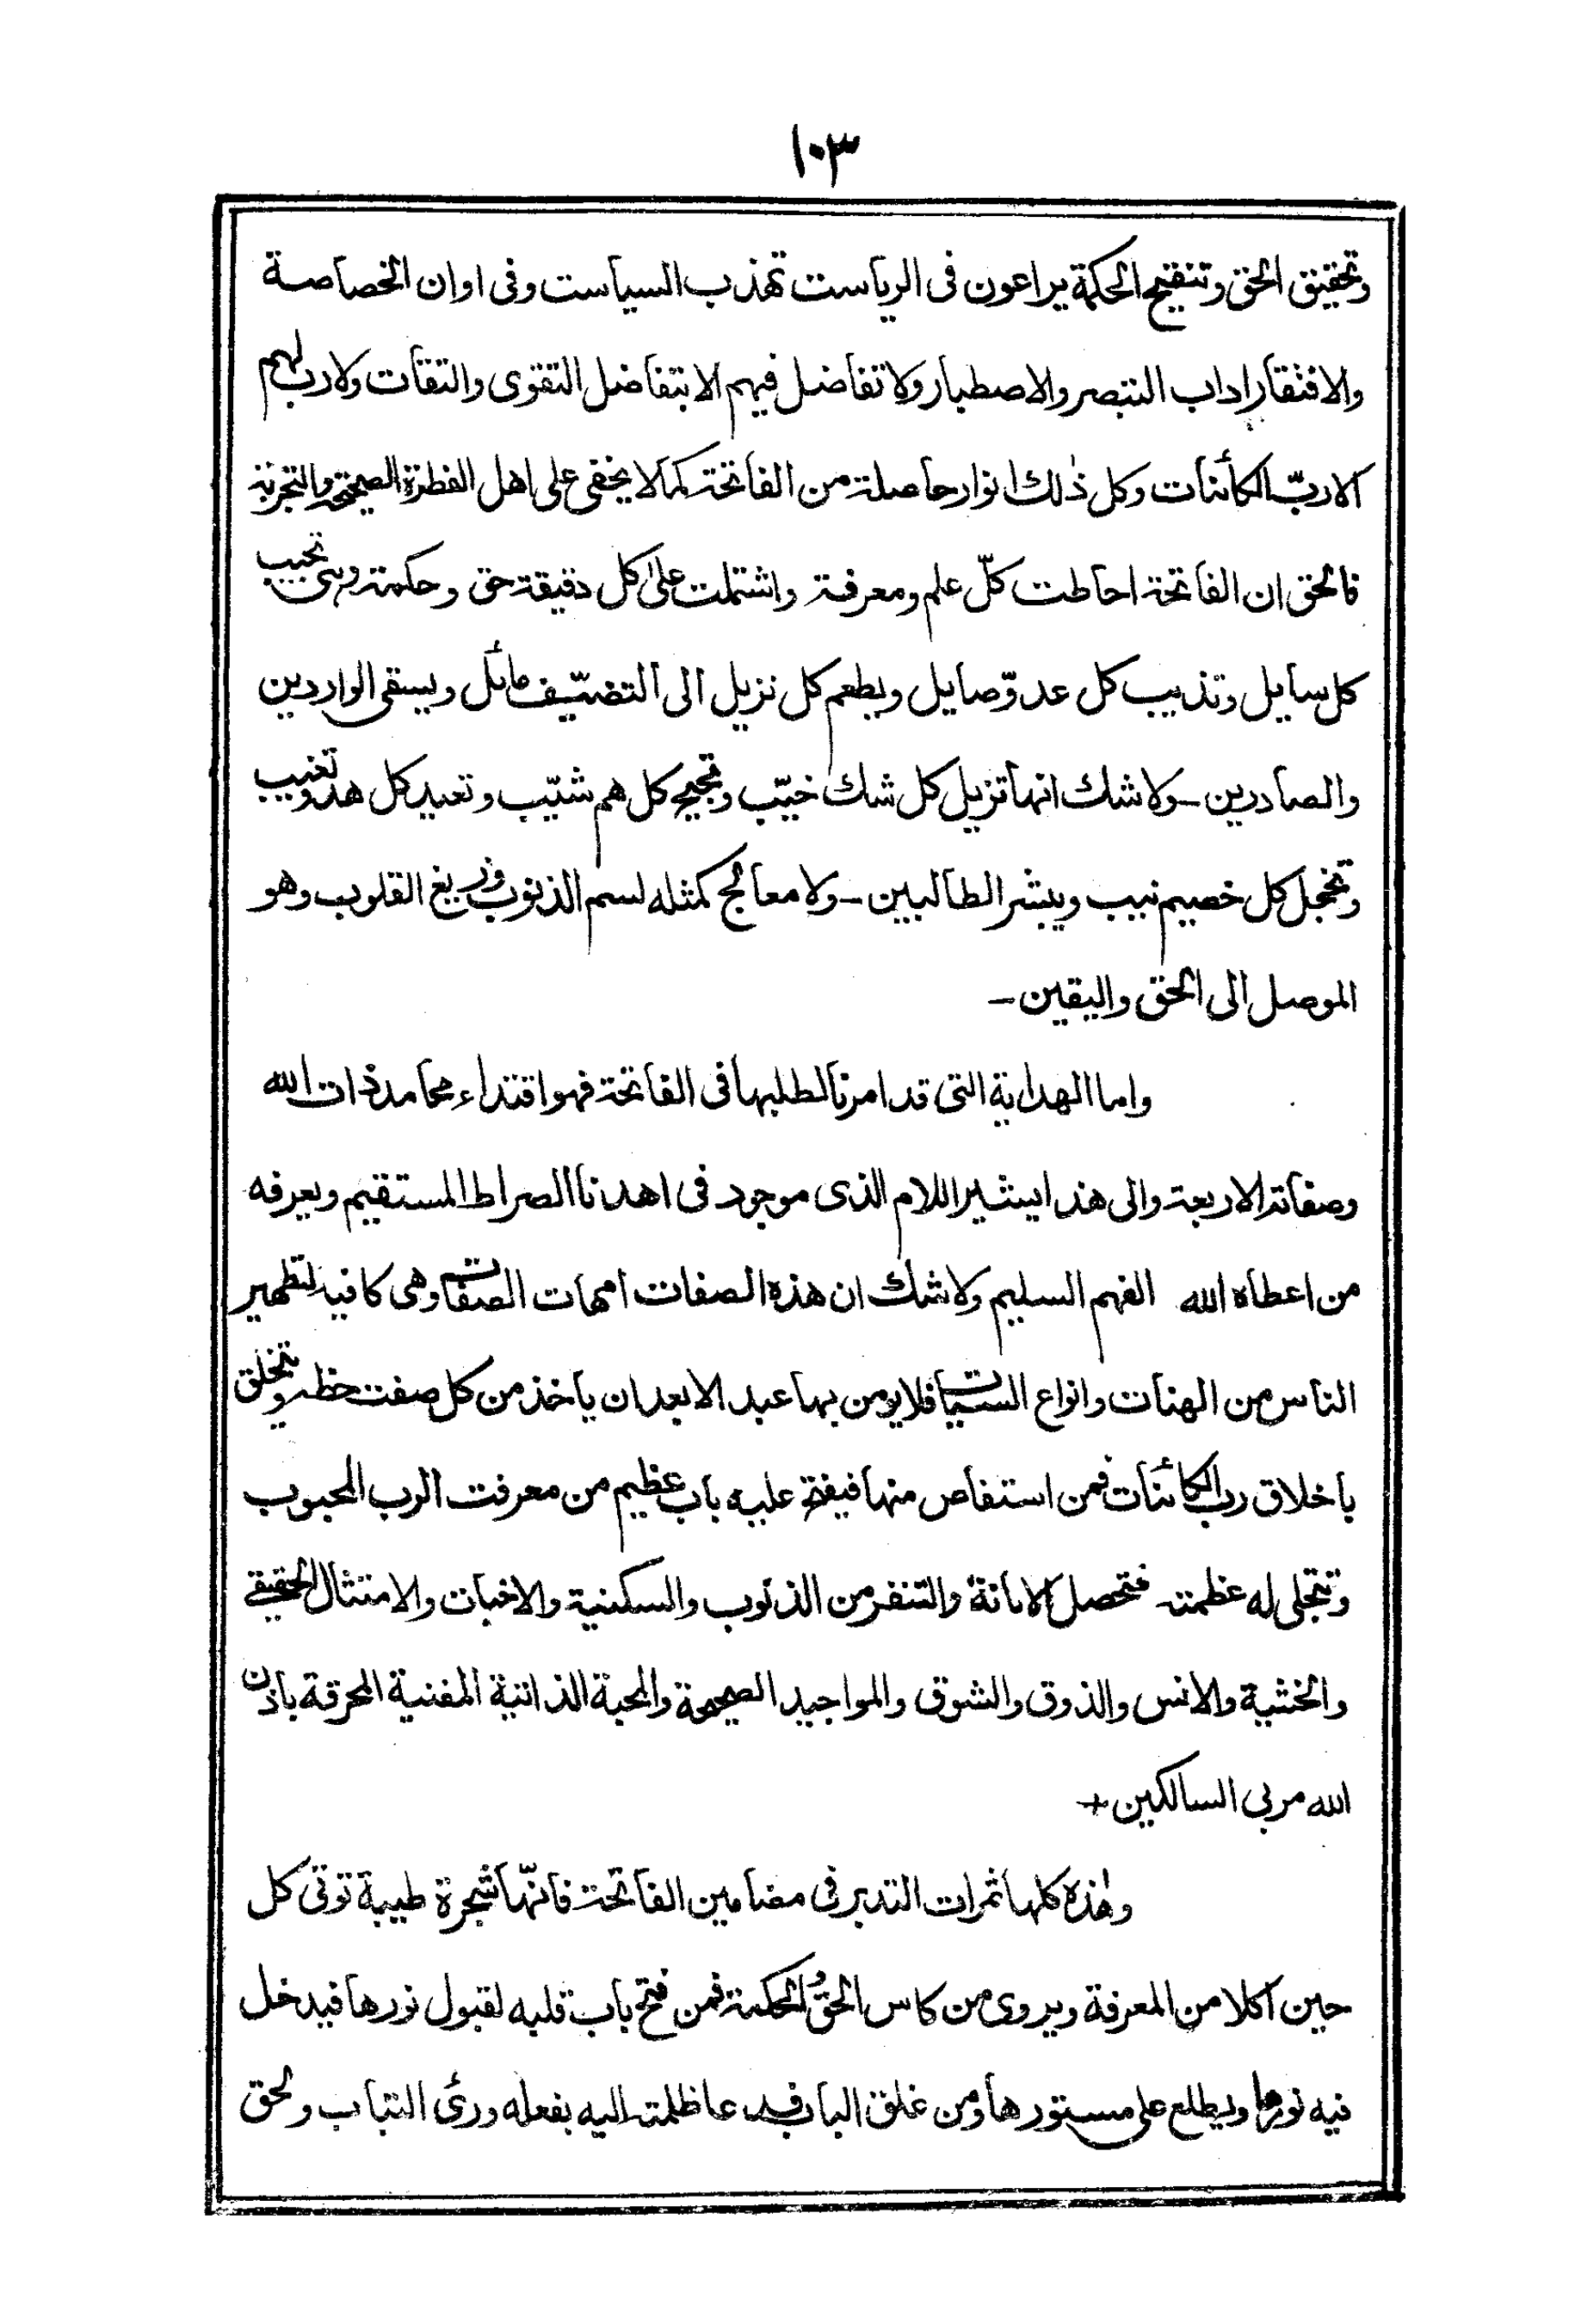 ١٠٣
وتحقيق الحق وتنقيح الحكمة يراعون فى الرياست تهذب السياست وفى اوان الخصاصة
والافتقار اداب التبصر والاصطبار ولا تفاضل فيهم الا بتفاضل التقوى والتقات ولا رب لهم
الا ربّ الكائنات وكل ذٰلك انوار حاصلة من الفاتحة كما لا يخفى على اهل الفطرة الصحيحة والتجربة
فالحق ان الفاتحة احاطت كلّ علم ومعرفة واشتملت علىٰ كل دقيقة حق وحكمة وهى تجيب
كل سايل وتذيب كل عدوّ صايل ويطعم كل نزيل الى التضيّف مائل ويسقى الواردين
والصادرين – ولا شك انها تزيل كل شك خيّب وتجيح كل هم شيّب وتعيد كل هدو تغيب
وتخجل كل خصيم نبيب ويبشر الطالبين – ولا معالج كمثله لسم الذنوب وزيغ القلوب وهو
الموصل الى الحق واليقين –
واما الهداية التى قد امرنا لطلبها فى الفاتحة فهو اقتداء محامد ذات الله
وصفاته الاربعة والى هذا يشير اللام الذى موجود فى اهدنا الصراط المستقيم ويعرفه
من اعطاه الله الفهم السليم ولا شك ان هذه الصفات امهات الصفات وهى كافية لتطهير
الناس من الهنات وانواع السيات فلا يومن بها عبد الا بعد ان ياخذ من كل صفت حظه ويتخلق
باخلاق رب الكائنات فمن استفاض منها فيفتح عليه باب عظيم من معرفت الرب المحبوب
وتتجلى له عظمته فتحصل الامانة والتنفر من الذنوب والسكينة والاخبات والامتثال الحقيقے
والخشية والانس والذوق والشوق والمواجيد الصحيحة والمحبة الذاتية المفنية المحرقة باذن
الله مربى السالكين +
وهٰذه كلها ثمرات التدبر فى مضامين الفاتحة فانّها شجرة طيبة توتى كل
حين اكلا من المعرفة ويروى من كاس الحق والحكمة فمن فتح باب قلبه لقبول نورها فيدخل
فيه نورها ويطلع على مستورها ومن غلق الباب فدعا ظلمته اليه بفعله ورئ التباب ولحق